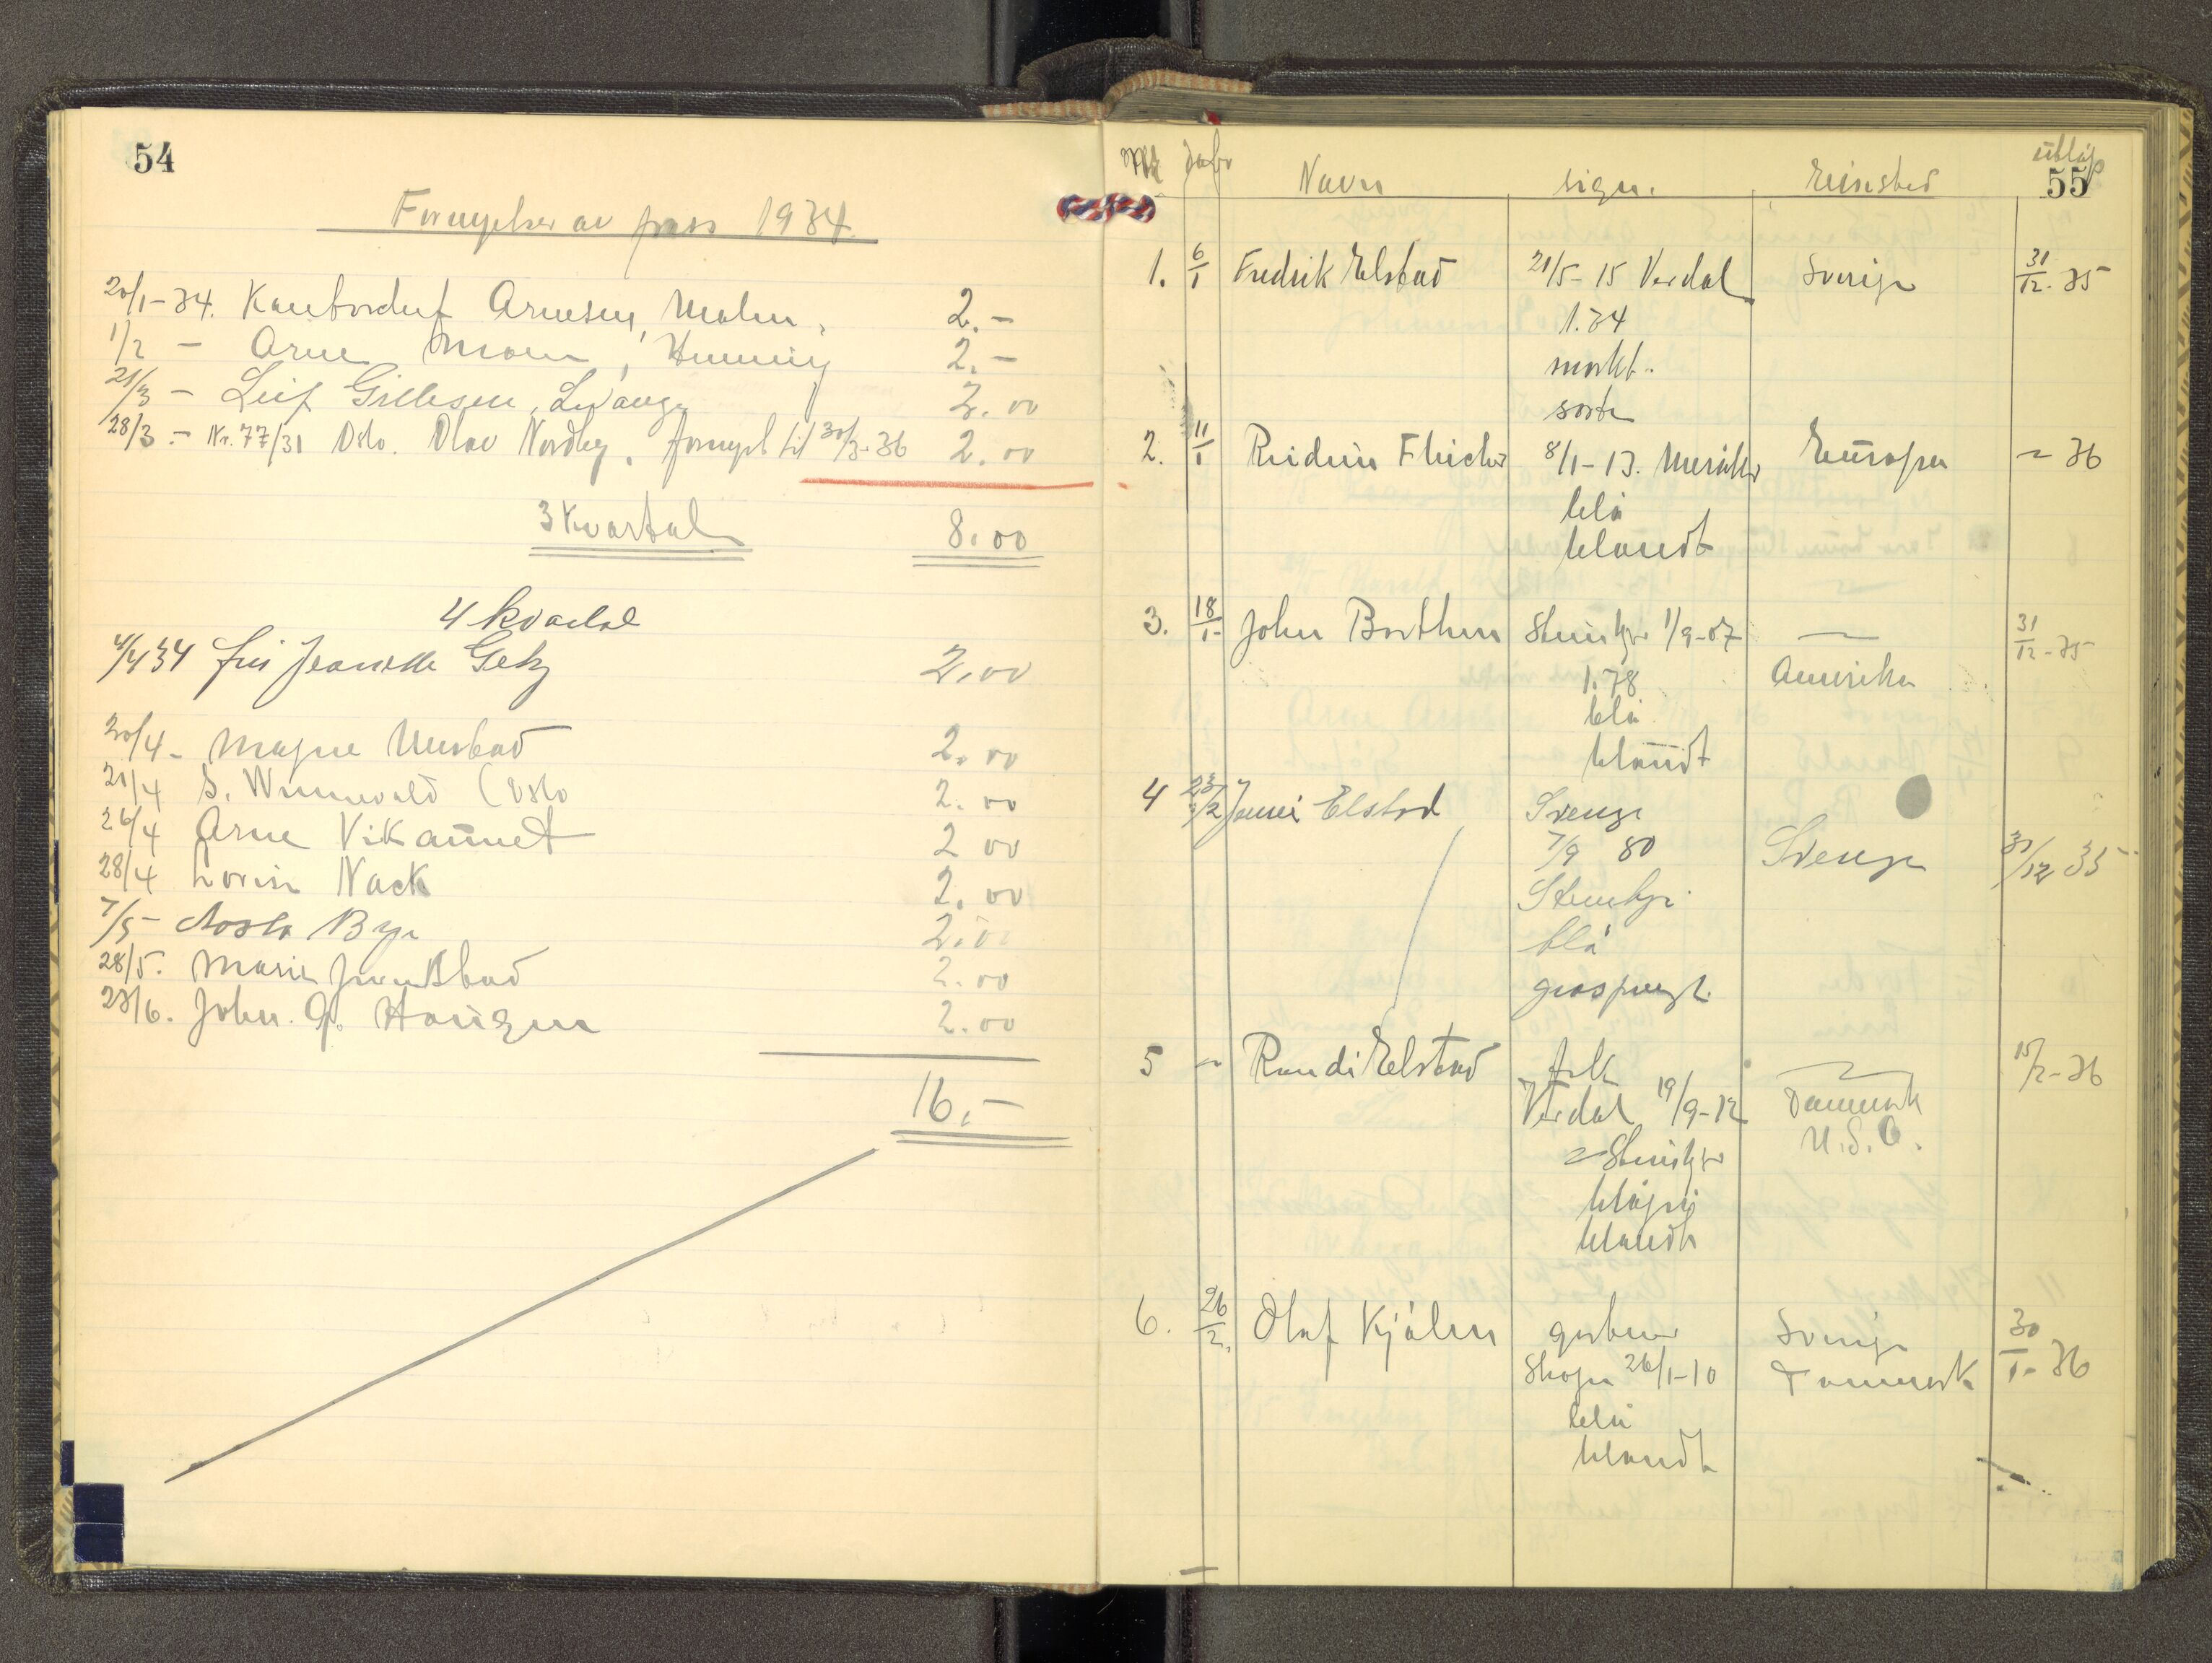 54
Fornyelser av pass 1934.
20/1-34. Kontorchef Arnesen, Malm. 2.-
1/2 - Arne Moen, Henning 2.-
21/3 - Leif Gillesen, Levanger 2.00
28/3 - Nr. 77/31 Oslo. Olav Nordby, fornyet til 30/3-36 2.00
3 Kvartal 8.00
4 kvartal
4/4 34 fru Jeanette Getz 2.00
20/4 - Magne 2.00
21/4 S. Wennevold (Oslo 2.00
26/4 Arne Vikaunet 2 00
28/4 Nack 2.00
7/5 - By 2.0
28/5. Marie 2.00
23/6. John. G. Haugan 2.00
16.-
55
Navn sign. Reisested utløp
1. 6/1 Fredrik Elstad 21/5-15 Verdal Sverige 31/12-35
1.74
mørkt.
sorte
2. 11/1 Reidun 8/1-13. Meråker Europa ~ 36
blå
blondt
3. 18/1- John Borthen Steinkjer 1/9-07 31/12-35
1.78 Amerika
blå
blondt
4 23/2 Elstad Sverige
7/9 80 Sverige 31/12 35
Steinkjer
blå
gråsprengt.
5 - Randi Elstad frk 15/2-36
Verdal 19/9-12 Danmark
~ Steinkjer U.S.A.
blågrå
blondt
6. 26/2. Olaf Kjølen gartner Sverige 30/1-36
Skogn 26/1-10 Danmark
blå
blondt